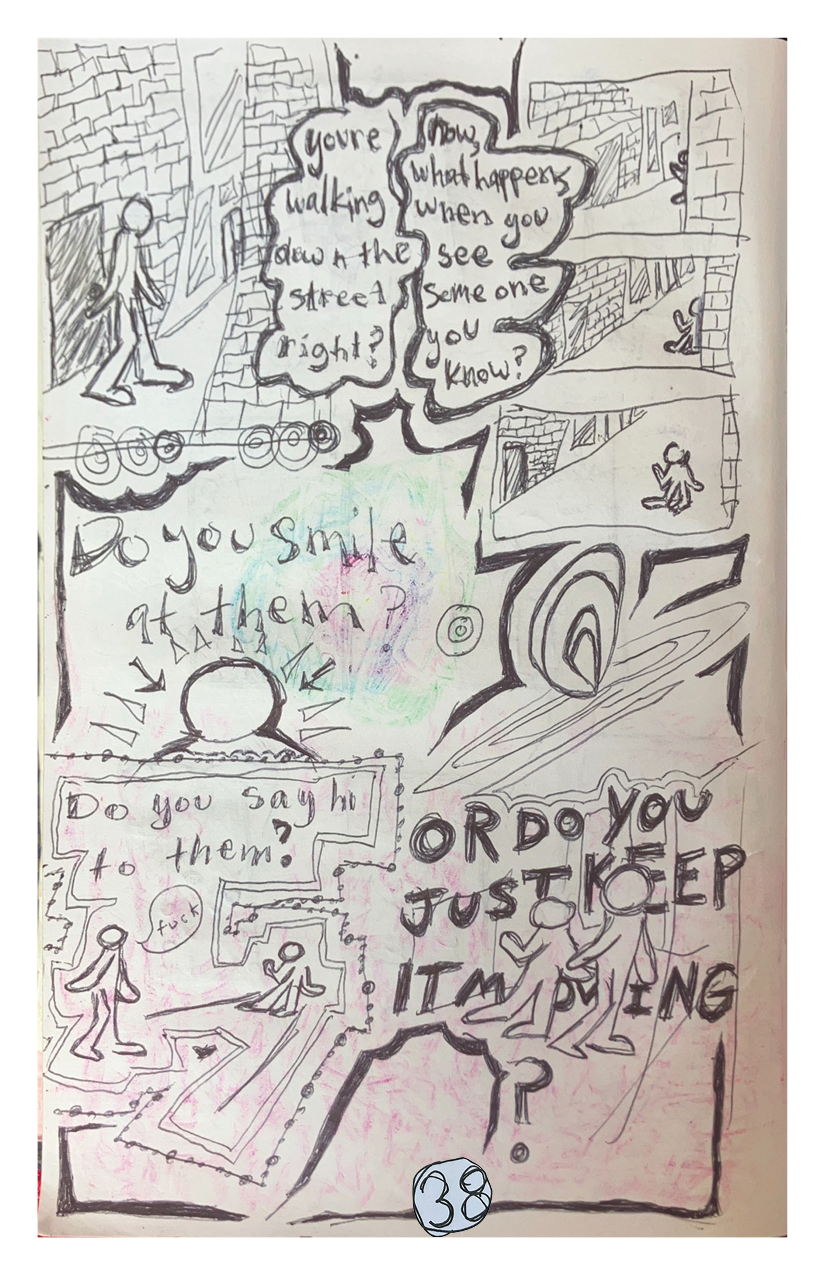 youre
walking
down the
street
right?
now,
what happens
when you
see
someone
you
know?
Do you smile
at them?
Do you say hi
to them?
fuck
OR DO YOU
JUST KEEP
IT MOVING
?
38